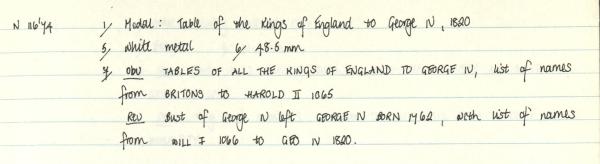 N 116'74 1/ Medal: Table of the Kings of England to George IV, 1820
5/ White metal 6/ 48.6 mm
7/ Obv TABLES OF ALL THE KINGS OF ENGLAND TO GEORGE IV, list of names
from BRITONS to HAROLD II 1065
Rev Bust of George IV left GEORGE IV BORN 1762, with list of names
from WILL I 1066 to GEO IV 1820.